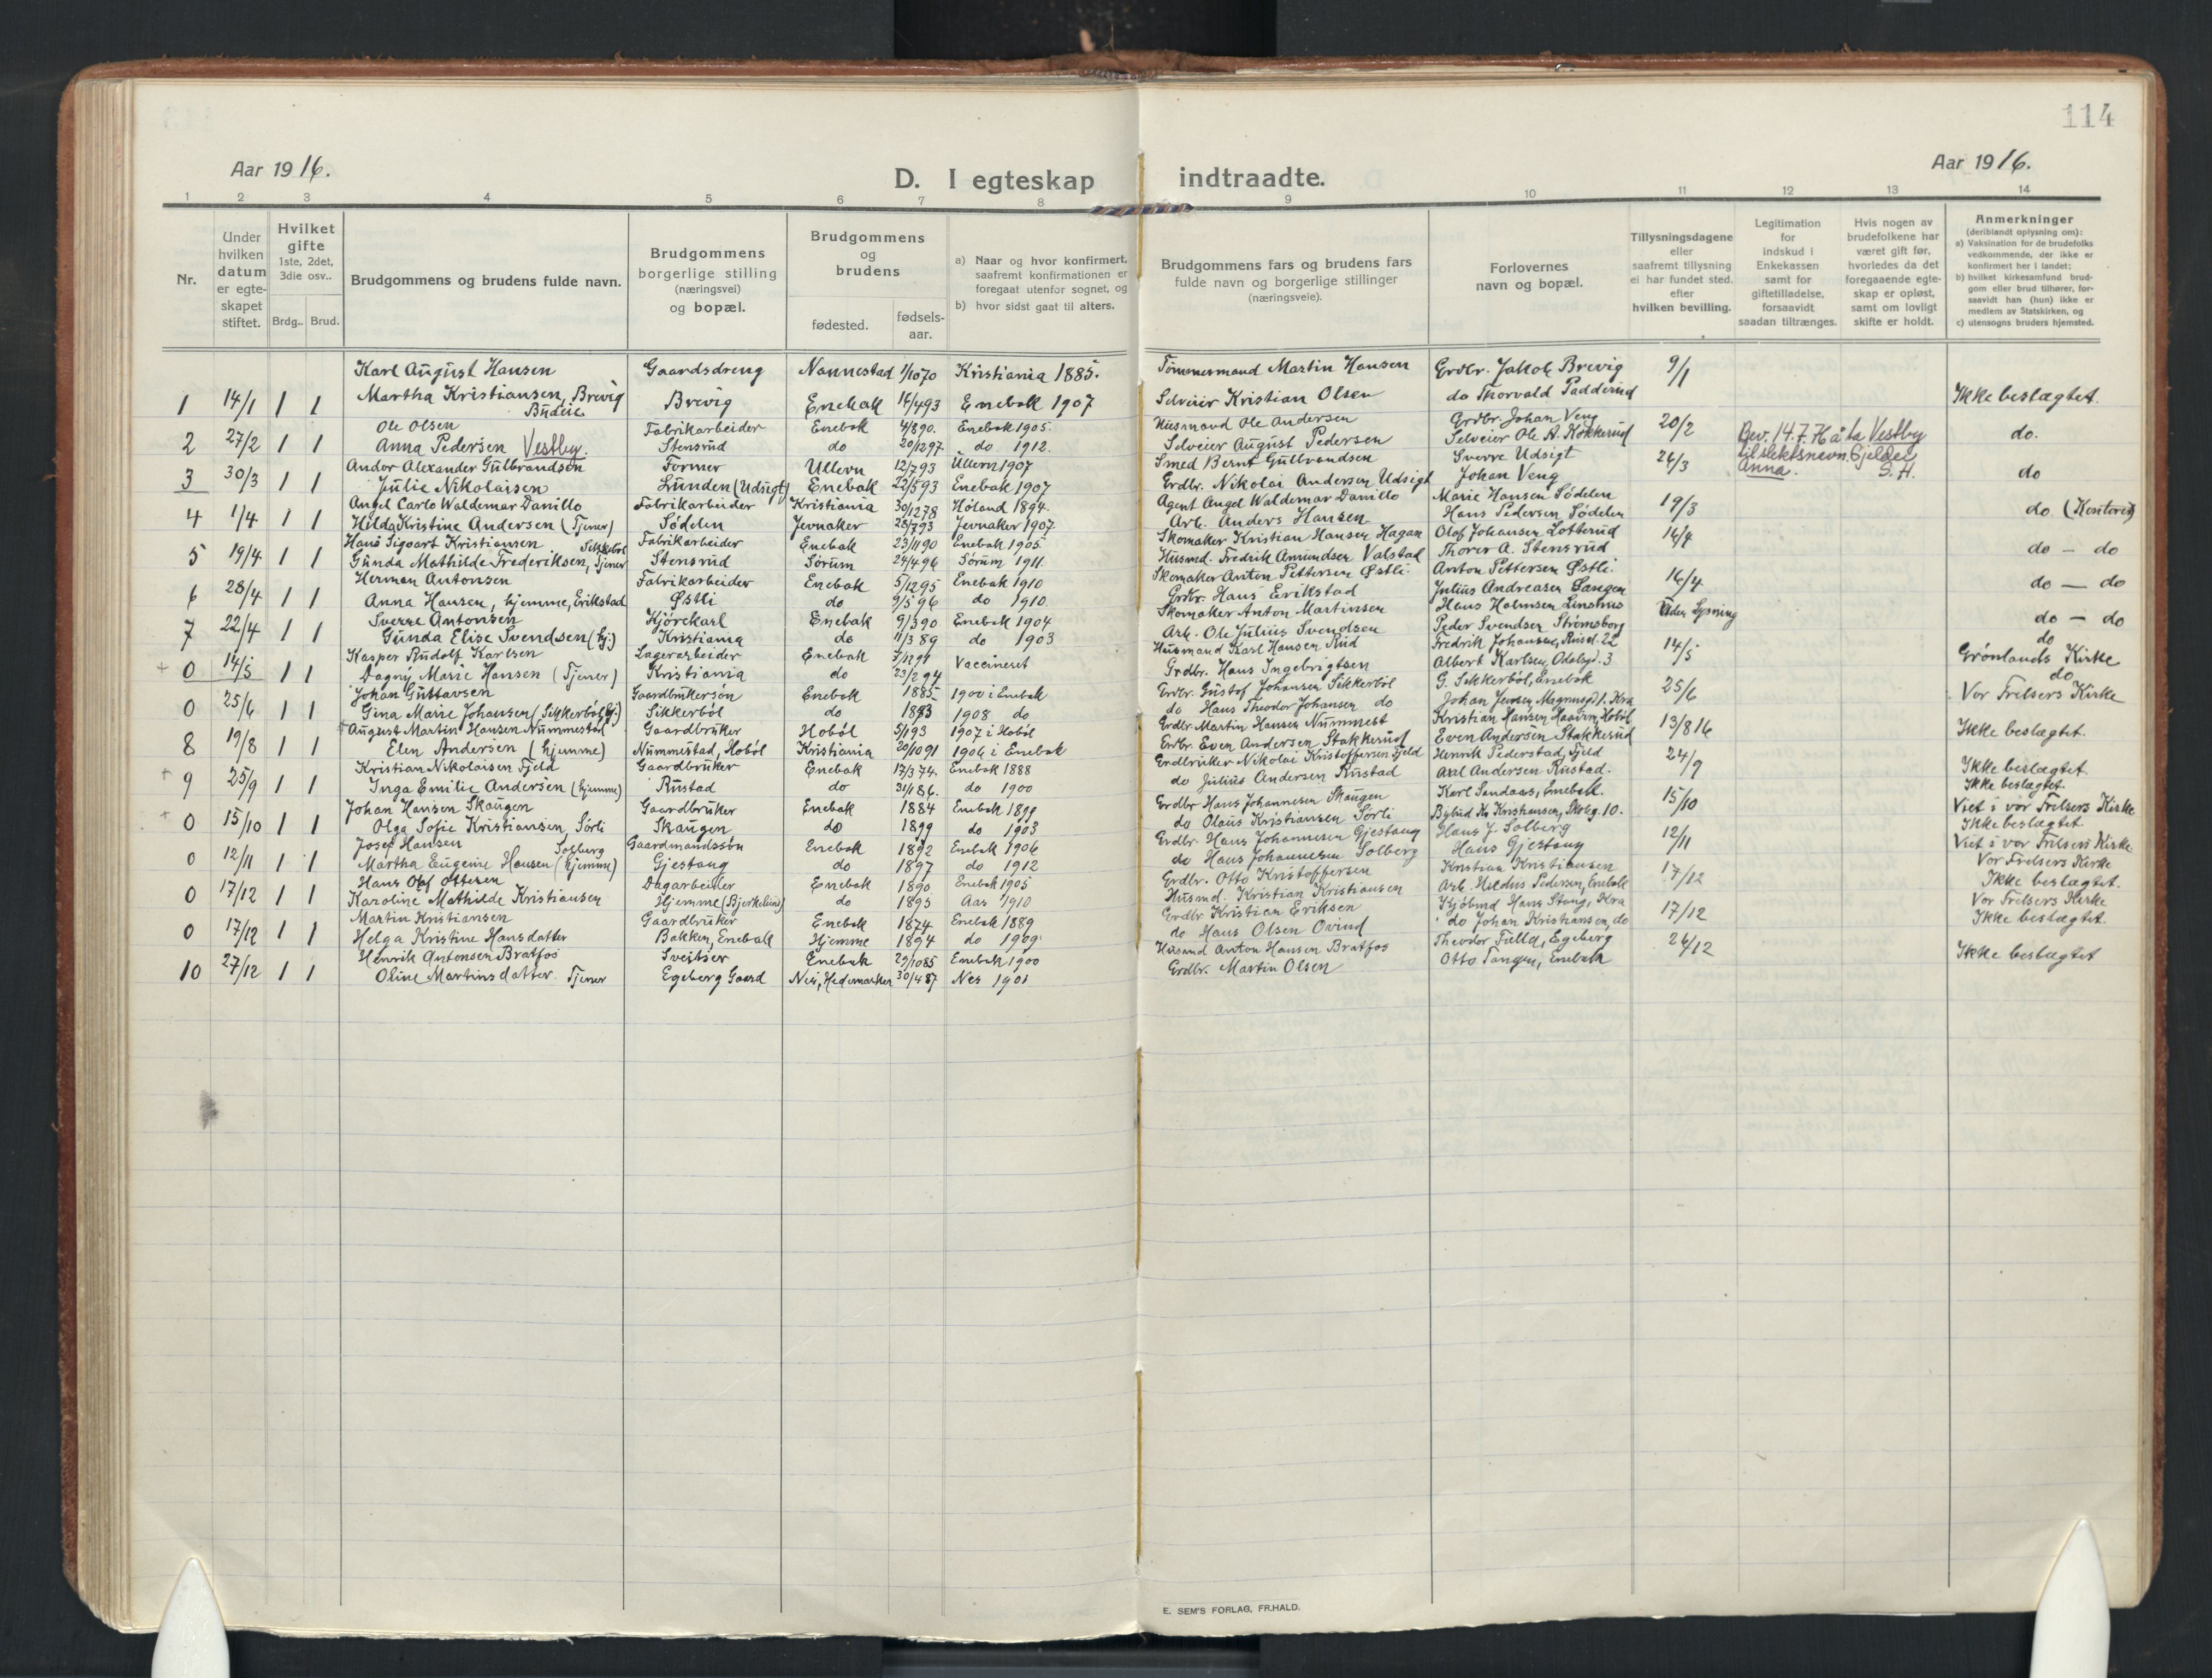 114
Aar 1916.
Aar 1916.
D. I egteskap indtraadte.
1 2 3 4 5 6 7 8 9 10 11 12 13 14
Nr.
Under hvilken datum er egte-skapet stiftet.
Hvilket gifte 1ste, 2det, 3die osv..
Brdg.. Brud.
Brudgommens og brudens fulde navn.
Brudgommens borgerlige stilling (næringsvei) og bopæl.
Brudgommens og brudens
fødested.
fødsels-aar.
a) Naar og hvor konfirmert, saafremt konfirmationen er foregaat utenfor sognet, og
b) hvor sidst gaat til alters.
Brudgommens fars og brudens fars fulde navn og borgerlige stillinger (næringsveie).
Forlovernes navn og bopæl.
Tillysningsdagene eller saafremt tillysning ei har fundet sted. efter hvilken bevilling.
Legitimation for indskud i Enkekassen samt for giftetilladelse, forsaavidt saadan tiltrænges.
Hvis nogen av brudefolkene har været gift før, hvorledes da det foregaaende egte-skap er opløst, samt om lovligt skifte er holdt.
Anmerkninger (deriblandt oplysning om):
a) Vaksination for de brudefolks vedkommende, der ikke er konfirmert her i landet;
b) hvilket kirkesamfund brud-gom eller brud tilhører, for-saavidt han (hun) ikke er medlem av Statskirken, og
c) utensogns bruders hjemsted.
Karl August Hansen Gaardsdreng Nannestad 1/10 70 Kristiania 1885. Tömmermand Martin Hansen Grdbr. Jakob Brevig 9/1
1 14/1 1 1 Martha Kristiansen, Brevig Budeie Brevig Enebak 14/4 93 Enebak 1907 Selveier Kristian Olsen do Thorvald Padderud Ikke beslægtet.
Ole Olsen Fabrikarbeider Enebak 4/8 90. Enebak 1905. Husmand Ole Andersen Grdbr. Johan Veng 20/2
2 27/2 1 1 Anna Pedersen Vestby. Stensrud do 20/12 97. do 1912. Selveier August Pedersen Selveier Ole A. Kokkerud Bev. 14.7. H å ta Vestby til slektsnavn. Gjelder Anna. S. H. do.
Andor Alexander Gulbrandsen Former Ullern 12/7 93 Ullern 1907 Smed Bernt Gulbrandsen Sverre Udsigt 26/3
3 30/3 1 1 Julie Nikolaisen Lunden (Udsigt) Enebak 22/5 93 Enebak 1907 Grdbr. Nikolai Andersen Udsigt Johan Veng do
Angel Carlo Waldemar Danillo Fabrikarbeider Kristiania 30/12 78 Höland 1894. Agent Angel Waldemar Danillo Marie Hansen Södelen 19/3
4 1/4 1 1 Hilda Kristine Andersen (Tjener) Södelen Jevnaker 28/7 93 Jevnaker 1907. Arb. Anders Hansen Hans Pedersen Södelen do
Hans Sigvart Kristiansen Fabrikarbeider Enebak 23/11 90 Enebak 1905 Skomaker Kristian Hansen Hagan Olof Johansen Lotterud 16/4
5 19/4 1 1 Gunda Mathilde Frederiksen, Tjener Stensrud Sörum 24/4 96 Sörum 1911. Husmd. Fredrik Amundsen Valstad Thorer A. Stensrud do - do
Herman Antonsen Fabrikarbeider Enebak 5/12 95 Enebak 1910 Skomaker Anton Pettersen Østli. Anton Pettersen Østli. 16/4
6 28/4 1 1 Anna Hansen, hjemme, Erikstad Østli do 9/5 96 do 1910. Grdbr. Hans Erikstad Julius Andreasen Sangen do - do
Sverre Antonsen Kjörekarl Enebak 9/3 90 Enebak 1904 Skomaker Anton Martinsen Hans Halmsen Uden Lysning
7 22/4 1 1 Gunda Elise Svendsen (hj.) Kristiania do 11/3 89 do 1903 Arb. Ole Julius Svendsen Peder Svendsen Strömsborg do - do
Kasper Rudolf Karlsen Lagerarbeider Enebak Vaccineret Husmand Karl Hansen Rud Fredrik Johansen, 22 14/5 do
0 14/5 1 1 Dagny Marie Hansen (Tjener) Kristiania do 23/2 94 Grdbr. Hans Ingebrigtsen Albert Karlsen, 3 Grönlands Kirke
Johan Gustavsen Gaardbrukersön Enebak 1885 1900 i Enebak Grdbr. Gustaf Johansen Sikkerböl G. Sikkerböl, Enebak 25/6 do
0 25/6 1 1 Gina Marie Johansen (Sikkerböl, hj.) Sikkerböl do 1893 1908 do do Hans Theodor Johansen do Johan Jensen, Kra Vor Frelsers Kirke
August Martin Hansen Nummestad Gaardbruker Hoböl 5/1 93 1907 i Hoböl Grdbr. Martin Hansen Nummest Kristian Hansen Haavin, Hoböl 13/8 16
8 19/8 1 1 Elen Andersen (hjemme) Nummestad, Hoböl Kristiania 20/10 91 1906 i Enebak Grdbr. Even Andersen Stakkerud Even Andersen Stakkerud Ikke beslægtet.
Kristian Nikolaisen Fjeld Gaardbruker Enebak 17/3 74. Enebak 1888 Grdbruker Nikolai Kristoffersen Fjeld Henrik Pederstad, Fjeld 24/9
9 25/9 1 1 Inga Emilie Andersen (hjemme) Rustad do 31/1 86. do 1900 do Julius Andersen Rustad Axel Andersen Rustad. Ikke beslægtet.
Johan Hansen Skaugen Gaardbruker Enebak 1884 Enebak 1899 Grdbr Hans Johannesen Skaugen Karl Sandaas, Enebak. 15/10 Ikke beslægtet.
0 15/10 1 1 Olga Sofie Kristiansen, Sörli Skaugen do 1899 do 1903 do Olaus Kristiansen Sörli Bybud Kr. Kristiansen, 10. Viet i vor Frelsers Kirke
Josef Hansen Gaardmandssön Enebak 1892 Enebak 1906 Grdbr. Hans Johannesen Gjestang Hans J. Solberg 12/11 Ikke beslægtet.
0 12/11 1 1 Martha Eugenie Hansen (hjemme) Solberg Gjestang do 1897 do 1912 do Hans Johannesen Solberg Hans Gjestang Viet i vor Frelsers Kirke
Hans Olaf Ottesen Dagarbeider Enebak 1890 Enebak 1905 Grdbr. Otto Kristoffersen Kristian Kristiansen 17/12 Vor Frelsers Kirke
0 17/12 1 1 Karoline Mathilde Kristiansen Hjemme (Bjerkelund) do 1893 Aas 1910 Husmd. Kristian Kristiansen Arb. Hildus Pedersen, Enebak Ikke beslægtet.
Martin Kristiansen Gaardbruker Enebak 1874 Enebak 1889 Grdbr Kristian Eriksen Hans Steng, Kra 17/12 Vor Frelsers Kirke
0 17/12 1 1 Helga Kristine Hansdatter Bakken, Enebak Hjemme 1894 do 1909 do Hans Olsen Övind do Johan Kristiansen, do Ikke beslægtet.
Henrik Antonsen Bratfos Sveitser Enebak 29/10 85 Enebak 1900 Husmd Anton Hansen Bratfos Theodor Fulld, Egeberg 26/12
10 27/12 1 1 Oline Martinsdatter. Tjener Egeberg Gaard Nes, Hedemarken 30/4 87 Nes 1901 Grdbr. Martin Olsen Otto Tangen, Enebak Ikke beslægtet
E. SEM'S FORLAG, FR.HALD.